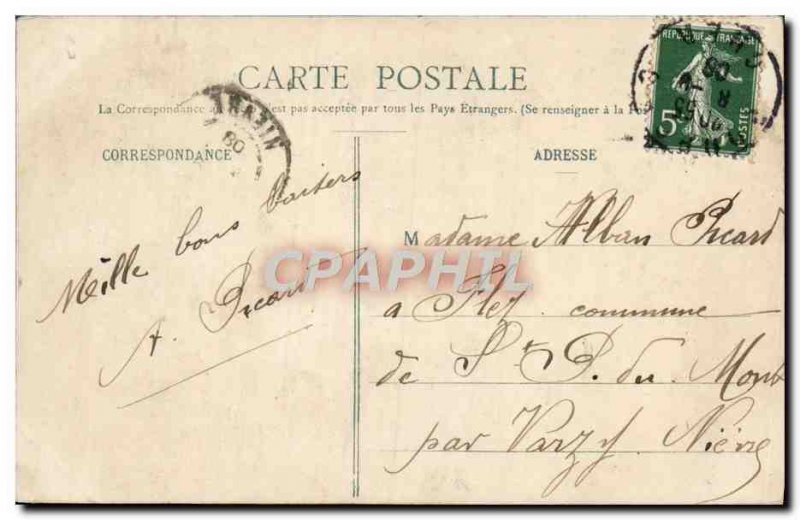 CARTE POSTALE
La Correspondance au est pas acceptée par tous les Pays Etrangers. (Se renseigner à la Pos
CORRESPONDANCE
ADRESSE
REPUBLIQUE FRANÇAISE
5
POSTES
08
NIEVRE
Mille bons baisers
A. Picard
CPAPHIL
Madame Alban Picard
a Flez commune
de St P. du Mont
par Varzy. Nièvre